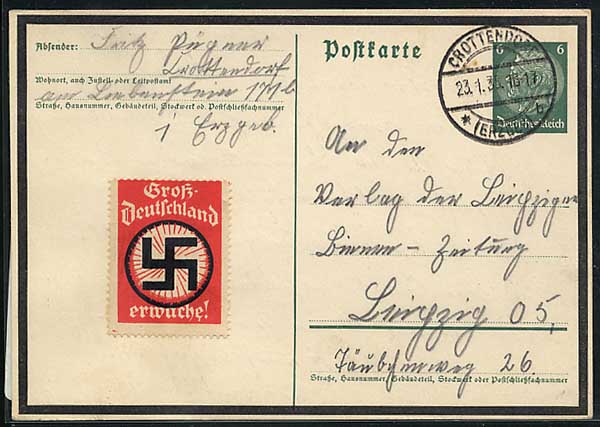 Absender: Fritz Pügner
Crottendorf
Wohnort, auch Zustell- oder Leitpostamt
am Liebenstein 171 b
Straße, Hausnummer, Gebäudeteil, Stockwerk od. Postschließfachnummer
i Erzgeb.
Groß-
Deutschland
erwache!
Postkarte
6 6
Deutsches Reich
CROTTENDORF
23.1.3 16-17
b
* (ERZGEB
An den
Verlag der Leipziger
Bienen-Zeitung
Leipzig O 5,
Täubchenweg 26.
Straße, Hausnummer, Gebäudeteil, Stockwerk oder Postschließfachnummer